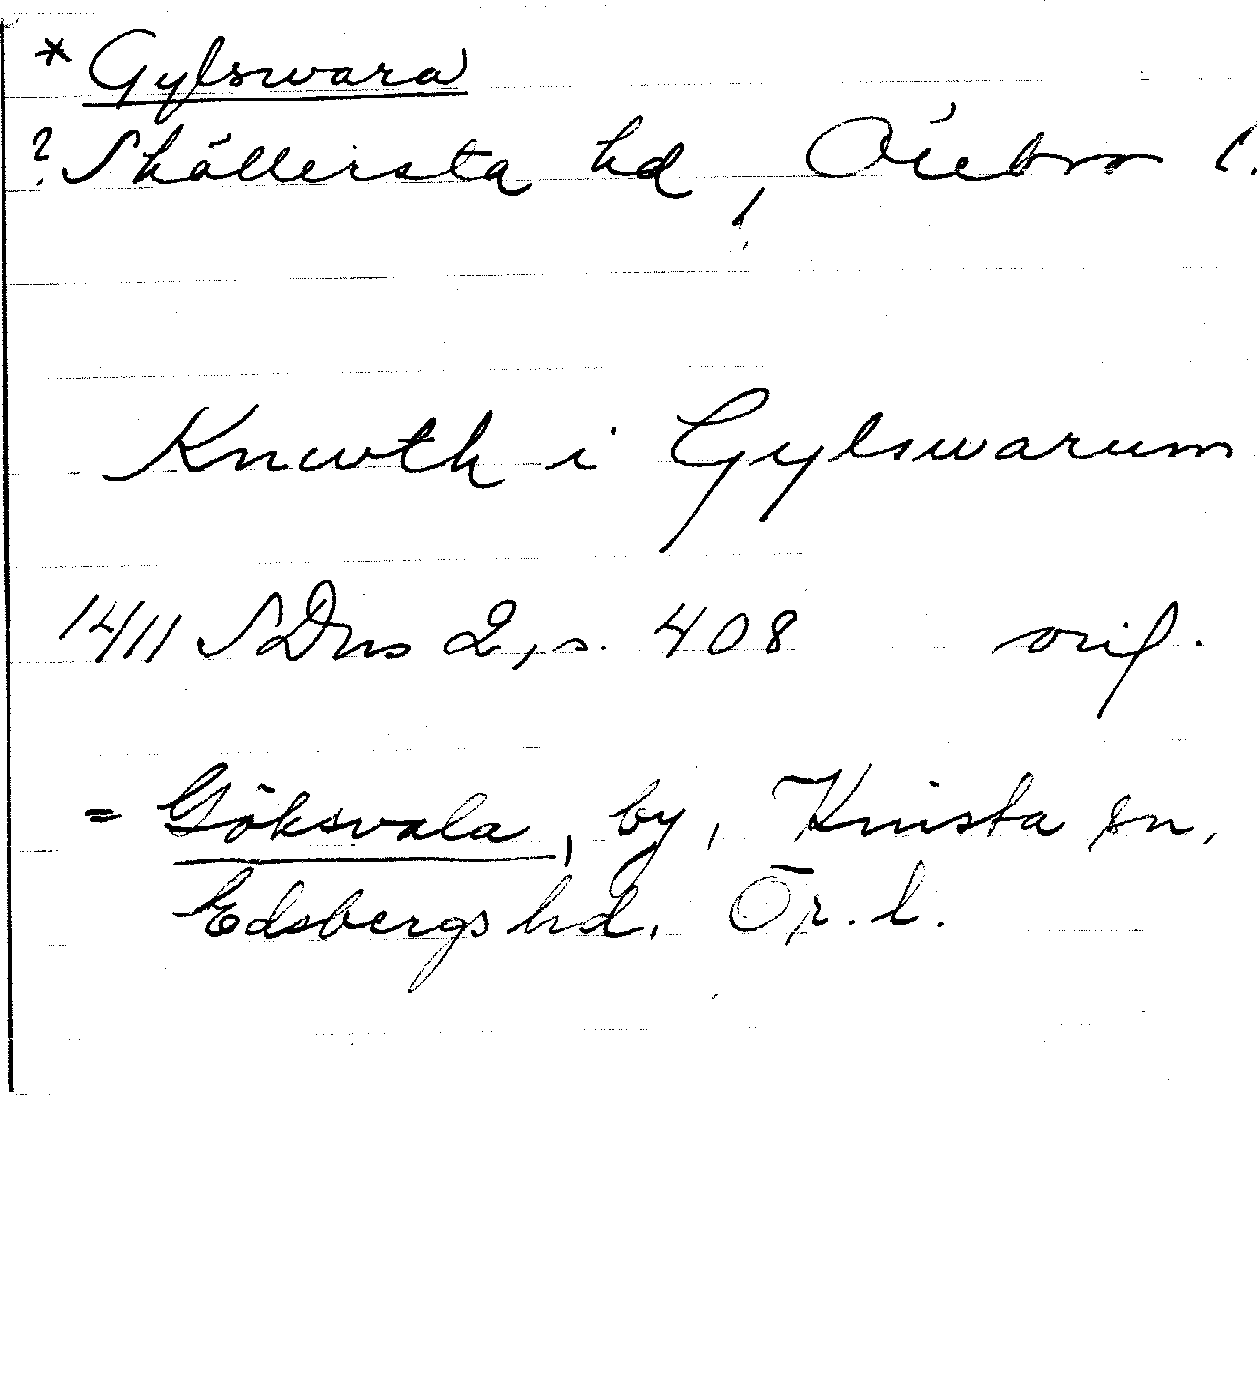 * Gylswara
? Skällersta hd, Örebro l.
Knwth i Gylswarum
1411 SDns 2, s. 408 orig.
= Göksvala, by, Knista sn,
Edsbergs hd. Ör. l.